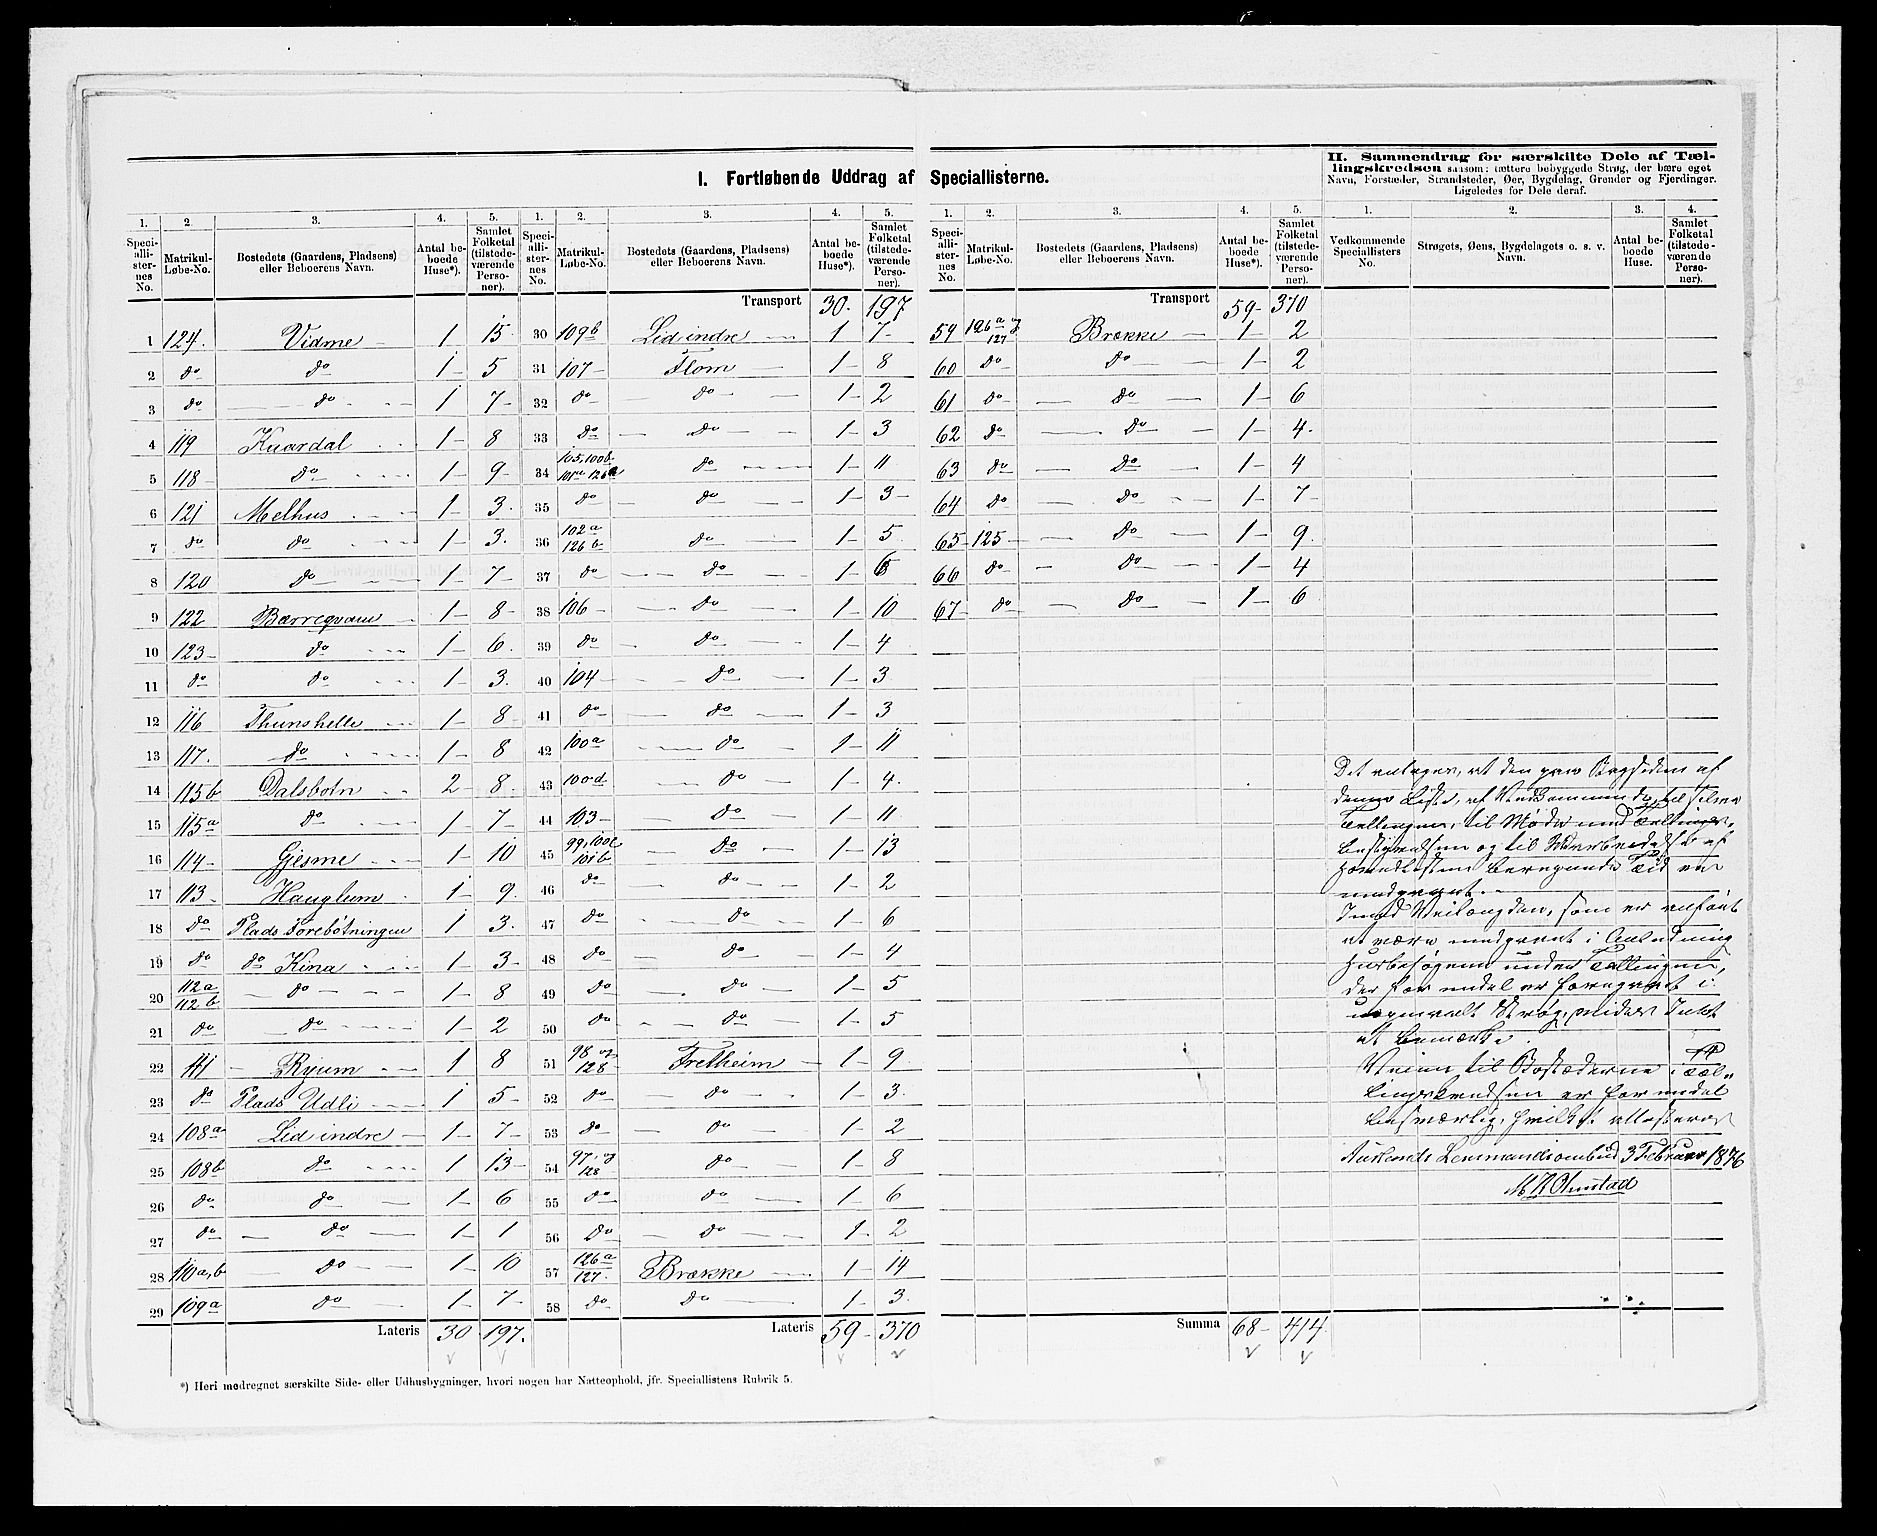 I. Fortløbende Uddrag af Speciallisterne.
II. Sammendrag for særskilte Dele af Tæl-
lingskredsen saasom: tættere bebyggede Strøg, der bære eget
Navn, Forstæder, Strandsteder, Øer, Bygdelag, Grender og Fjerdinger.
Ligeledes for Dele deraf.
1. 2. 3. 4. 5.
Speciallisternes No. Matrikul-Løbe-No. Bostedets (Gaardens, Pladsens) eller Beboerens Navn. Antal beboede Huse*). Samlet Folketal (tilstedeværende Personer).
1 124. Vidme 1 15
2 do do 1 5
3 do do 1 7
4 119 Kvardal 1 8
5 118 do 1 9
6 121 Melhus 1 3
7 do do 1 3
8 120 do 1 7
9 122 Bærreqvam 1 8
10 123 do 1 6
11 do do 1 3
12 116 Thunshelle 1 8
13 117. do 1 8
14 115b Dalsbotn 2 8
15 115a do 1 7
16 114 Gjesme 1 10
17 113 Hauglum 1 9
18 do Plads Forebøtningen 1 3
19 do do Kina 1 3
20 112a 112b do 1 8
21 do do 1 2
22 111 Ryum 1 8
23 do Plads Udli 1 5
24 108a Lid indre 1 7
25 108b do 1 13
26 do do 1 6
27 do do 1 1
28 110a,b do 1 10
29 109a do 1 7
Lateris 30 197.
1. 2. 3. 4. 5.
Speciallisternes No. Matrikul-Løbe-No. Bostedets (Gaardens, Pladsens) eller Beboerens Navn. Antal beboede Huse*). Samlet Folketal (tilstedeværende Personer).
Transport 30. 197
30 109b Lid indre 1 7
31 107 Flom 1 8
32 do do 1 2
33 do do 1 3
34 105, 100b 126a do 1 11
35 do do 1 3
36 102a 126b do 1 5
37 do do 1 6
38 106 do 1 10
39 do do 1 4
40 104 do 1 3
41 do do 1 3
42 100a do 1 11
43 100d do 1 4.
44 103 do 1 11
45 99, 100c 101b do 1 13
46 do do 1 2
47 do do 1 6
48 do do 1 4
49 do do 1 5
50 do do 1 5
51 98 og 128 Fretheim 1 9
52 do do 1 3
53 do do 1 2
54 97, og 128 do 1 8
55 do do 1 6
56 do do 1 2
57 126a 127. Brække 1 14
58 do do 1 3
Lateris 59 370
1. 2. 3. 4. 5.
Speciallisternes No. Matrikul-Løbe-No. Bostedets (Gaardens, Pladsens) eller Beboerens Navn. Antal beboede Huse*). Samlet Folketal (tilstedeværende Personer).
Transport 59 370
59 126a og 127 Brække 1 2
60 do do 1 2
61 do do 1 6
62 do do 1 4.
63 do do 1 4
64 do do 1 7
65 125 do 1 9
66 do do 1 4
67 do do 1 6
Summa 68 414
1. 2. 3. 4.
Vedkommende Speciallisters No. Strøgets, Øens, Bygdelagets o. s. v. Navn. Antal beboede Huse. Samlet Folketal (tilstedeværende Personer).
at den paa Bagsiden af
denne Liste, af Vedkommende, til selve
Tællingen, til Møde med Tællings-
bestyrelsen og til af
Hovedlisten beregnede Tid er
medgaaet.
Imod Veilængden, som er anført
at være medgaaet i Anledning
Husbesøgene under Tællingen,
der for endel er foregaaet i
Strøg, vides Intet
at bemærke.
Veien til Bostæderne i Tæl-
lingskredsen er for endel
besværlig, hvilket attesteres
Aurlands Lensmandsombud 3 Februar 1876
*) Heri medregnet særskilte Side- eller Udhusbygninger, hvori nogen har Natteophold, jfr. Speciallistens Rubrik 5.